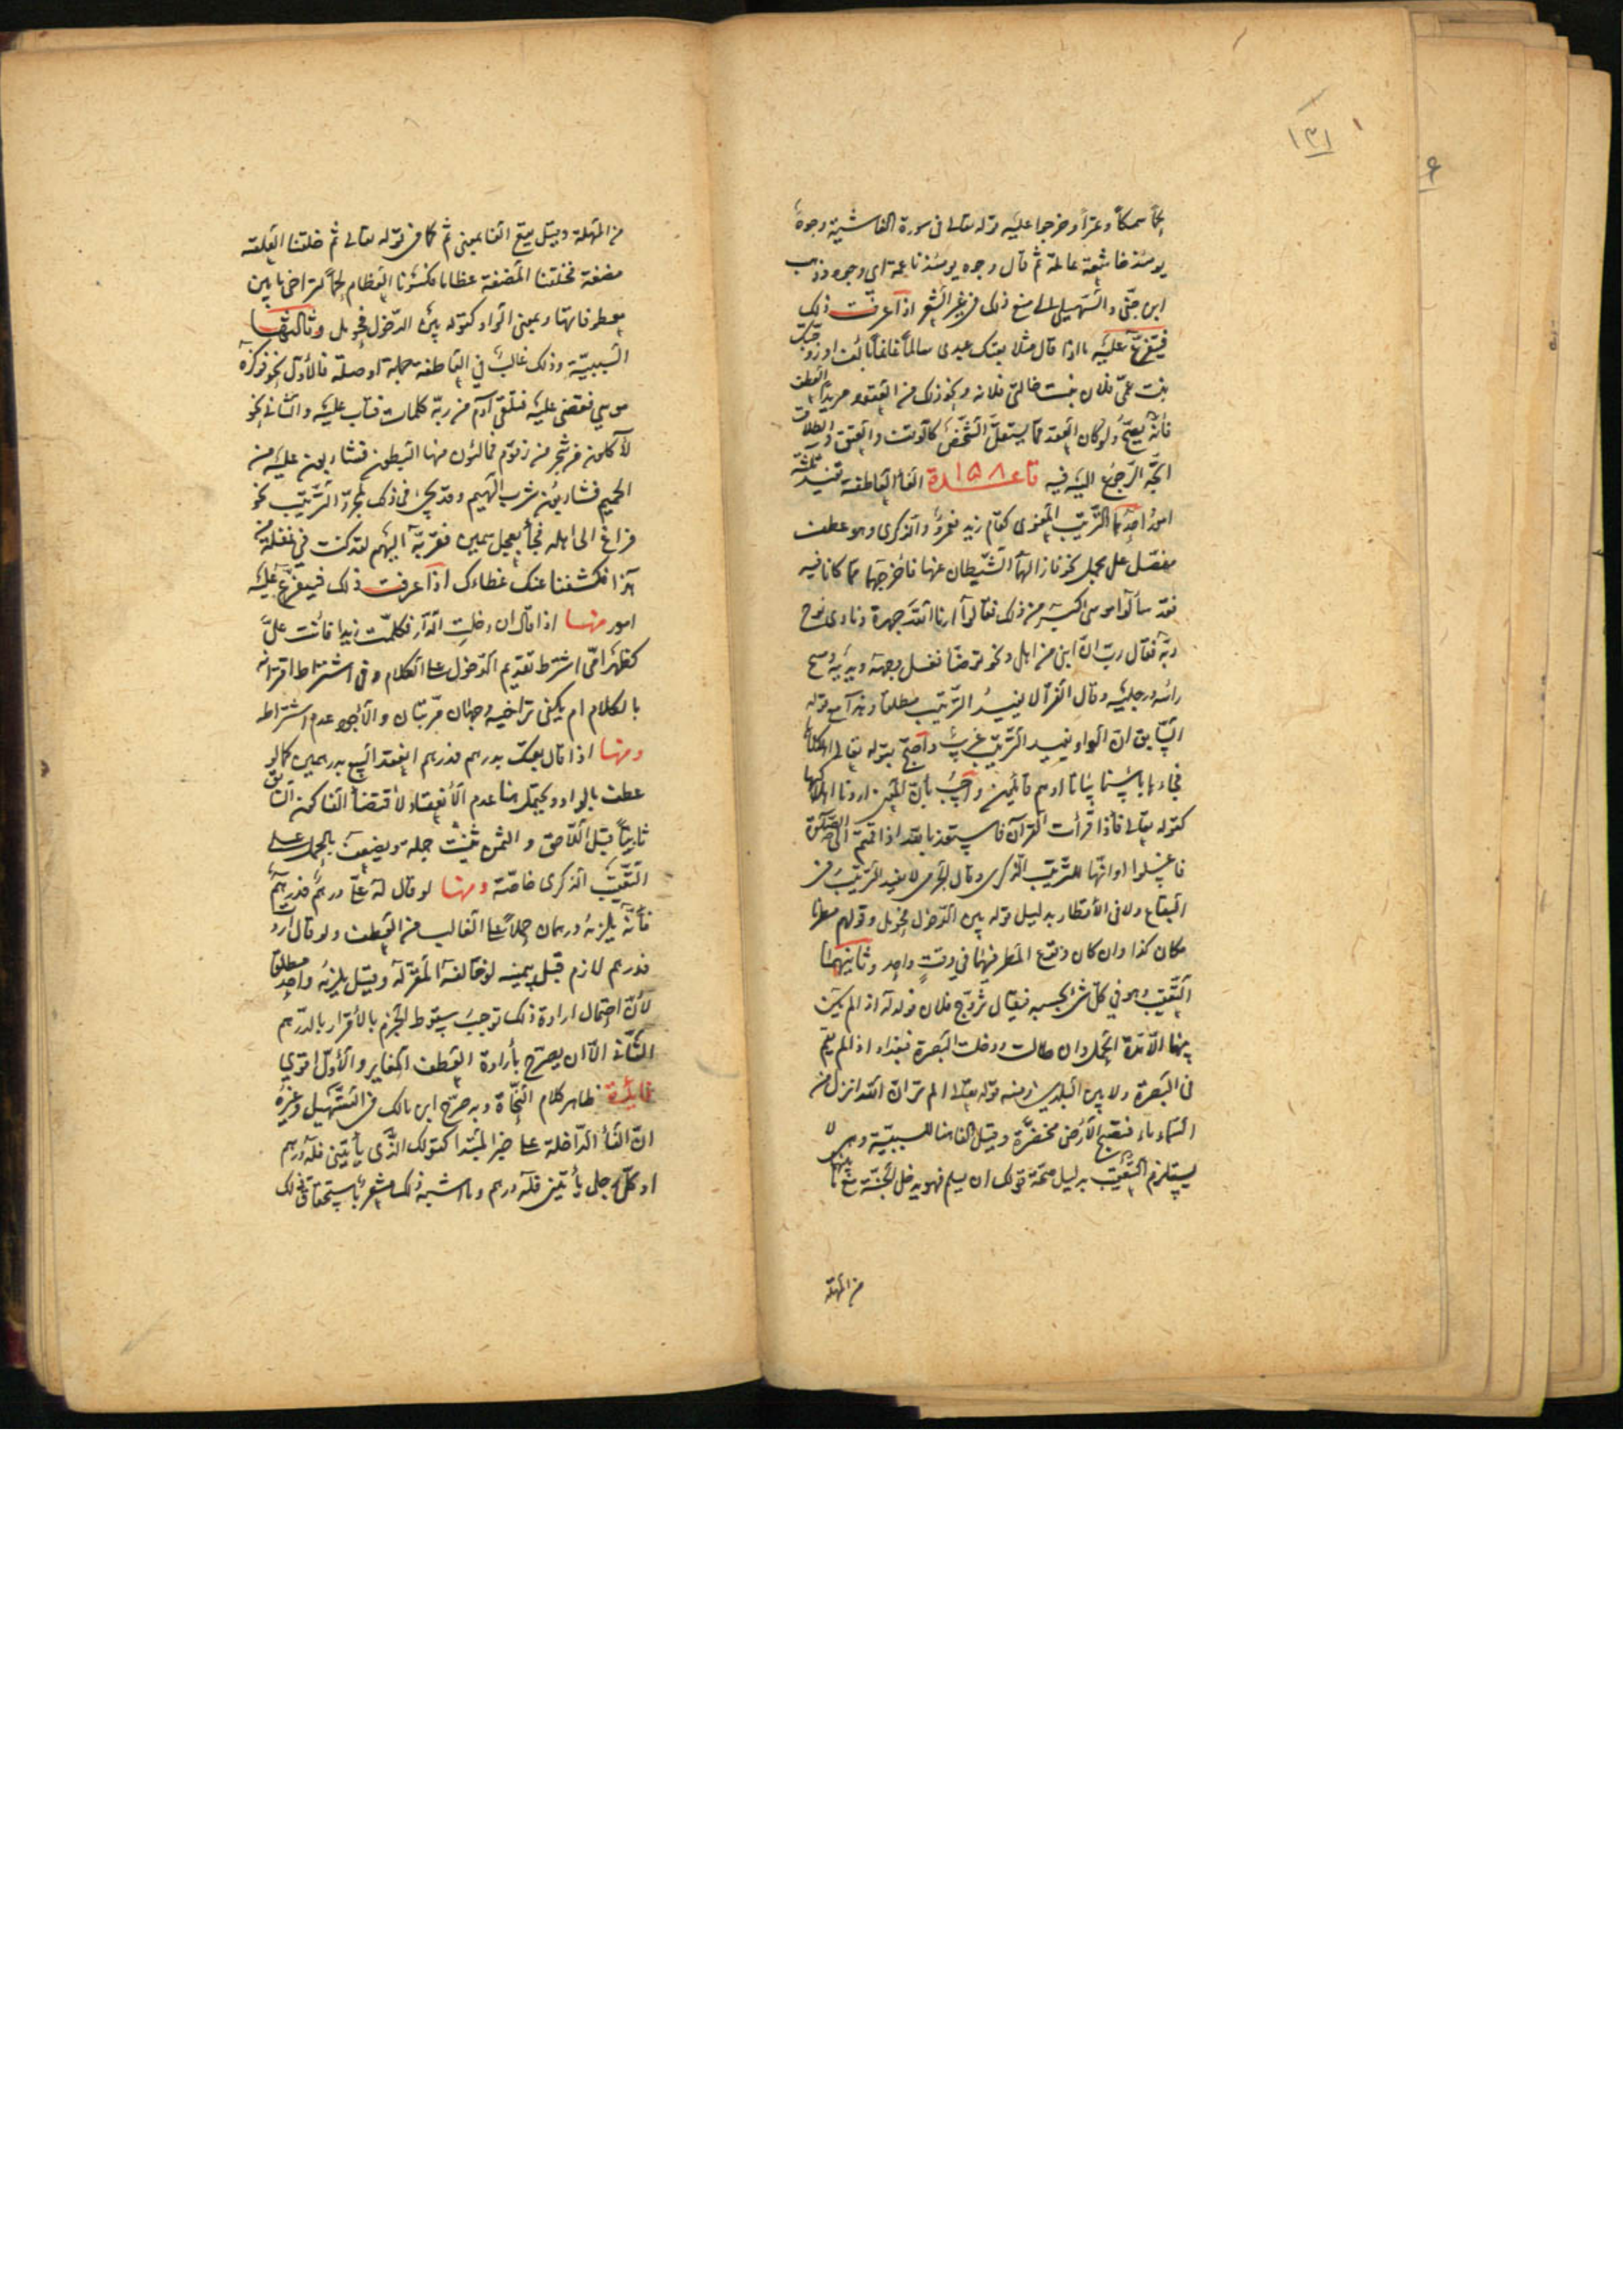 ١٣١
لحماً سمكاً وتمراً وخرجوا عليه قوله تعالى فى سورة الغاشية وجوهٌ
يومئذ خاشعة عاملة ثم قال وجوه يومئذ ناعمة اى ووجوه وذهب
ابن جنّى والسّهيلى الى منع ذلك فى غير الشعر اذا عرفت ذلك
فيتفرّع عليه ما اذا قال مثلا بعتك عبدى سالماً غانماً بالف او زوّجتك
بنت عمّى فلان بنت خالتى فلانه ونحو ذلك من العقود مريداً لعطف
فأنّه يصحّ ولو كان العقد ممّا يستقلّ الشخص كالوقف والعتق والطلاق
اتّجه الرّجوع اليه فيه قاعدة ١٥٨ الفاء العاطفة تفيد ثلثة
امور احدها الترتيب المعنوى كقام زيد فعمرو والذكرى وهو عطف
مفصّل على مجمل نحو فازالهما الشّيطان عنها فاخرجهما ممّا كانا فيه
فقد سألوا موسى اكبر من ذلك فقالوا ارنا الله جهرة ونادى نوح
ربّه فقال ربّ انّ ابنى من اهلى ونحو توضّأ فغسل وجهه ويديه ومسح
رأسه ورجليه وقال الفرّاء لا يفيد الترتيب مطلقا وهذا مع قوله
السّابق انّ الواو يفيد الترتيب غريب واحتجّ بقوله تعالى اهلكناها
فجاءها بأسنا بياتا او هم قائلون واجيب بأنّ المعنى اردنا اهلاكها
كقوله تعالى فاذا قرأت القرآن فاستعذ بالله اذا قمتم الى الصّلوة
فاغسلوا او انّها للترتيب الذكرى وقال الجرمى لا يفيد الترتيب فى
البقاع ولا فى الأمطار بدليل قوله بين الدّخول فحومل وقولهم مطرنا
مكان كذا وان كان وقوع المطر فيهما في وقتٍ واحد وثانيهما
التّعقيب وهو في كلّ شئ بحسبه فيقال تزوّج فلان فولد له اذا لم يكن
بينهما الّا مدّة الحمل وان طالت ودخلت البصرة فبغداد اذا لم يقم
فى البصرة ولا بين البلدين ومنه قوله تعالى الم تر انّ الله انزل من
السّماء ماء فتصبح الأرض مخضرّة وقيل الفاء هنا للسببيّة وهى لا
يستلزم التعقيب بدليل صحّة قولك ان يسلم فهو يدخل الجنّة مع ما بينهما
من المهلة
من المهلة وقيل يقع الفا بمعنى ثمّ كما فى قوله تعالى ثمّ خلقنا العلقة
مضغة فخلقنا المضغة عظاما فكسونا العظام لحماً لتراخى ما بين
معطوفاتها وبمعنى الواو كقوله بين الدّخول فحومل وثالثها
السّببيّة وذلك غالبٌ في العاطفة جملة او صفة فالأوّل نحو فوكزه
موسى فقضى عليه فتلقّى آدم من ربّه كلمات فتاب عليه والثانى نحو
لآكلون من شجر من زقّوم فمالئون منها البطون فشاربون عليه من
الحميم فشاربون شرب الهيم وقد يجئ فى ذلك لمجرّد الترتيب نحو
فراغ الى اهله فجاء بعجل سمين فقرّبه اليهم لقد كنت في غفلة من
هذا فكشفنا عنك غطاءك اذا عرفت ذلك فيتفرّع عليه
امور منها اذا قال ان دخلت الدّار فكلّمت زيدا فانت علىّ
كظهر امّى اشترط تقديم الدّخول على الكلام وفى اشتراط اقترانه
بالكلام ام يكفى تراخيه وجهان مرتّبان والأجود عدم اشتراطه
ومنها اذا قال بعتك بدرهم فدرهم انعقد البيع بدرهمين كما لو
عطف بالواو ويحتمل هنا عدم الأنعقاد لأقتضاء الفا كون السّابق
ثابتاً قبل اللّاحق والثمن يثبت جملة ويضعّف بالحمل على
التعقيب الذكرى خاصّة ومنها لو قال له علىّ درهم فدرهم
فأنّه يلزمه درهمان حملاً على الغالب من العطف ولو قال اردت
فدرهم لازم قبل يمينه لو خالفه المقرّ له وقيل يلزمه واحد مطلقا
لأنّ احتمال ارادة ذلك توجب سقوط الجزم بالأقرار بالدّرهم
الثّانى الّا ان يصرّح بأرادة العطف المغاير والأوّل اقوى
فائدة ظاهر كلام النّحاة وبه صرّح ابن مالك فى التسهيل وغيره
انّ الفاء الدّاخلة على خبر المبتدا كقولك الّذى يأتينى فله درهم
او كلّ رجل يأتينى فله درهم وما اشبه ذلك مشعر بأستحقاق ذلك